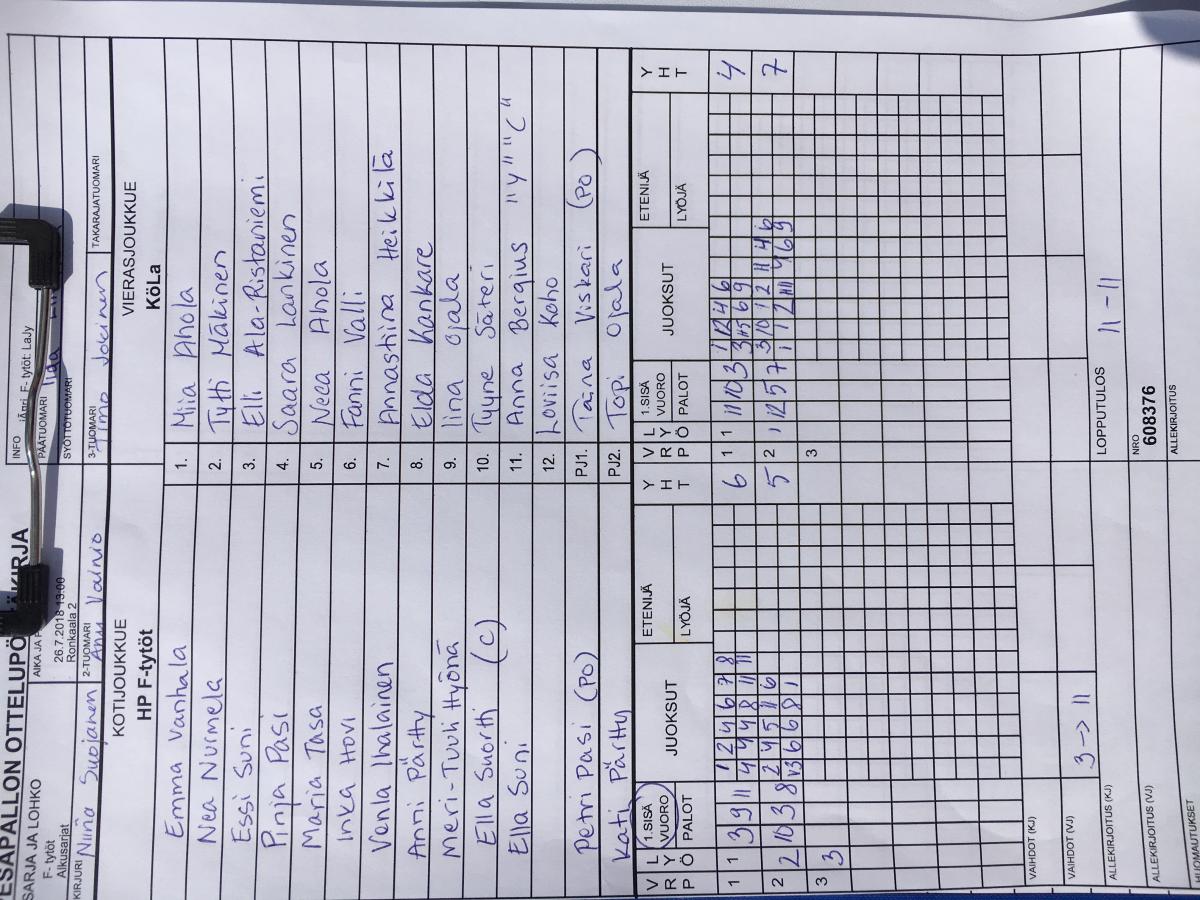 PESÄPALLON OTTELUPÖYTÄKIRJA
SARJA JA LOHKO
F- tytöt
Alkusarjat
AIKA JA P
26.7.2018 13:00
Ronkaala 2
INFO
F- tytöt: LaJy
PÄÄTUOMARI
SYÖTTÖTUOMARI
KIRJURI Niina Suojanen
2-TUOMARI Anu Vainio
3-TUOMARI Timo Jokinen
TAKARAJATUOMARI
KOTIJOUKKUE
HP F-tytöt
VIERASJOUKKUE
KöLa
Emma Vanhala 1. Miia Ahola
Nea Nurmela 2. Tytti Mäkinen
Essi Suni 3. Elli Ala-Ristaniemi
Pinja Pasi 4. Saara Lankinen
Maria Tasa 5. Neea Ahola
Inka Hovi 6. Fanni Valli
Vanla Ihalainen 7. Annastiina Heikkilä
Anni Pärtty 8. Elda Kankare
Meri-Tuuli Hyönä 9. Iina Ojala
Ella Suortti (C) 10. Tyyne Säteri
Ella Suni 11. Anna Bergius "V" "C"
12. Loviisa Koho
Petri Pasi (PO) PJ1. Taina Viskari (PO)
Kati Pärtty PJ2. Topi Ojala
V R P L Y Ö 1.SISÄ VUORO PALOT JUOKSUT ETENIJÄ LYÖJÄ Y H T V R P L Y Ö 1.SISÄ VUORO PALOT JUOKSUT ETENIJÄ LYÖJÄ Y H T
1 1 3 9 11 1 2 4 6 7 8 6 1 1 11 10 3 1 12 4 6 4
4 4 4 8 11 11 3 11 5 6 9
2 2 10 3 8 2 4 5 11 6 5 2 1 12 5 7 3 10 1 2 11 4 6 7
3 6 6 8 1 1 1 2 11 4 6 9
3 3 3
VAIHDOT (KJ)
VAIHDOT (VJ) 3 -> 11
ALLEKIRJOITUS (KJ)
LOPPUTULOS 11 - 11
ALLEKIRJOITUS (VJ)
NRO
608376
HUOMAUTUKSET
ALLEKIRJOITUS